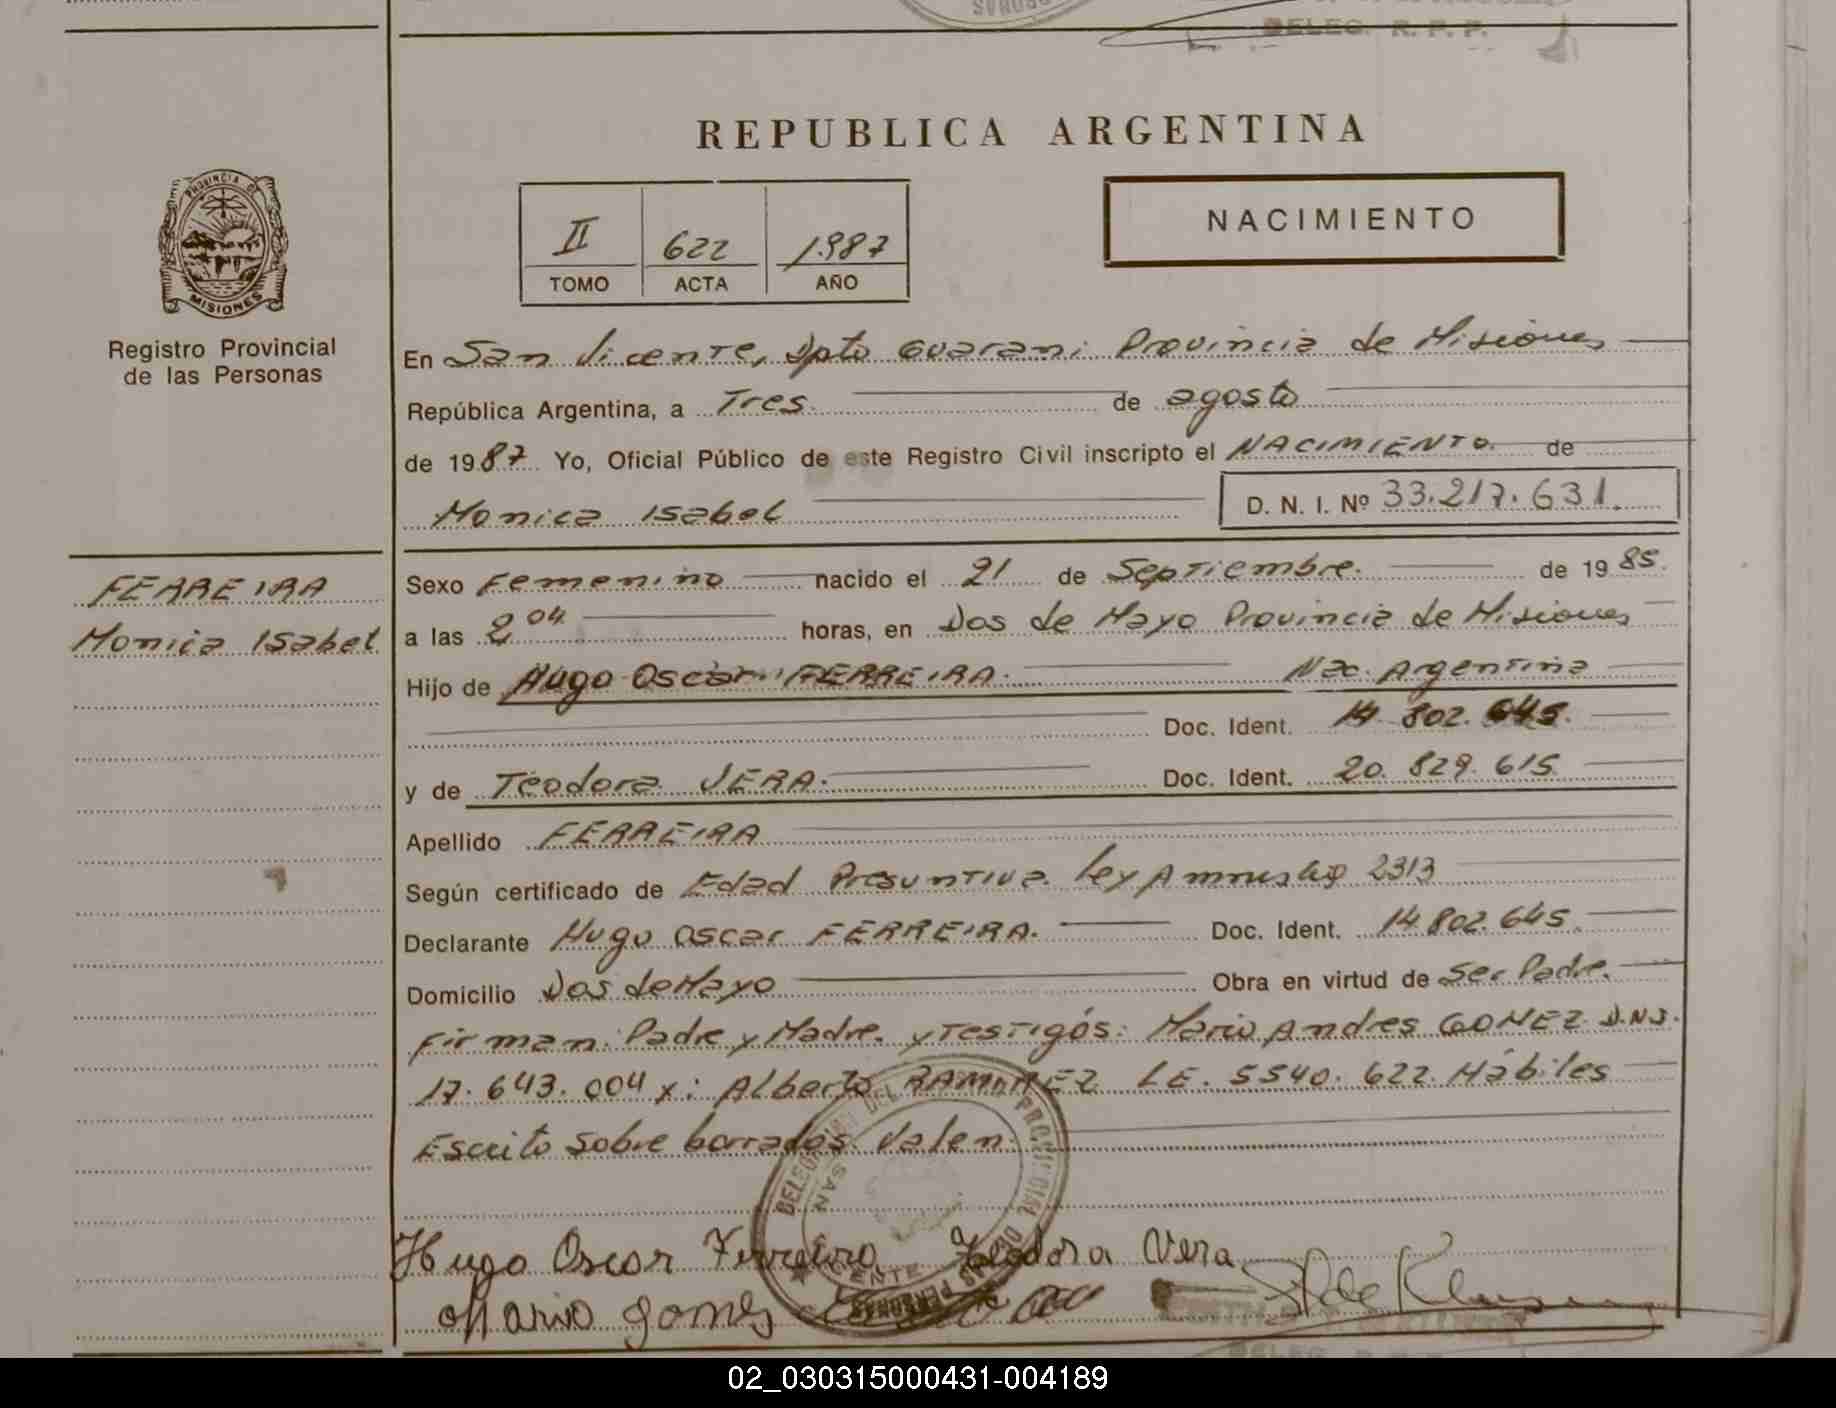 DELEG. R. P. P.
REPUBLICA ARGENTINA
PROVINCIA DE
MISIONES
II 622 1987
TOMO ACTA AÑO
NACIMIENTO
Registro Provincial
de las Personas
En San Vicente, Dpto Guarani Provincia de Misiones
República Argentina, a Tres. de agosto
de 1987 Yo, Oficial Público de este Registro Civil inscripto el NACIMIENTO. de
Monica Isabel D. N. I. Nº 33.217.631.
FERREIRA
Monica Isabel
Sexo Femenino nacido el 21 de Septiembre. de 1985.
a las 2 04 horas, en Dos de Mayo Provincia de Misiones
Hijo de Hugo Oscar FERREIRA. Nac. Argentina
Doc. Ident. 14.802.645.
y de Teodora VERA. Doc. Ident. 20.829.615
Apellido FERREIRA
Según certificado de Edad Presuntiva. Ley Amnistia 2313
Declarante Hugo Oscar FERREIRA. Doc. Ident. 14.802.645.
Domicilio Dos de Mayo Obra en virtud de Ser Padre.
Firman: Padre y Madre. y Testigos: Mario Andres GOMEZ D.N.I.
17.643.004 x: Alberto RAMIREZ L.E. 5540.622. Hábiles
Escrito sobre borrados. Valen.
DELEGACION DEL REG. PROVINCIAL DE LAS PERSONAS
SAN VICENTE
Hugo Oscar Ferreira Teodora Vera
Mario gomez
02_030315000431-004189